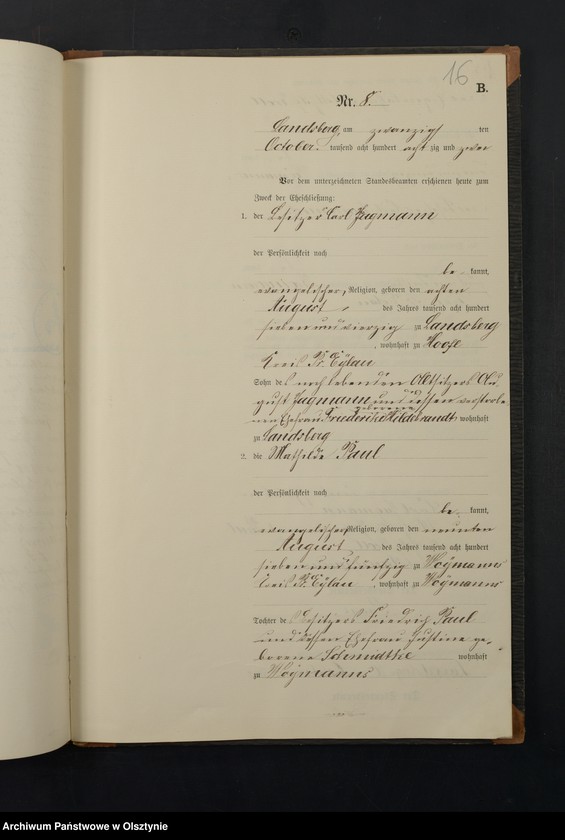 16
B.
Nr. 8.
Landsberg, am zwanzigs ten
October tausend acht hundert acht zig und zwei
Vor dem unterzeichneten Standesbeamten erschienen heute zum
Zweck der Eheschließung:
1. der Besitzer Carl Jagmann
der Persönlichkeit nach
be kannt,
evangelischer, Religion, geboren den achten
August des Jahres tausend acht hundert
sieben und vierzig zu Landsberg
, wohnhaft zu Hoofe
Kreis Pr. Eylau
Sohn des noch lebenden Altsitzers Au-
gust Jagmann und dessen verstorbe-
nen Ehefrau Friederike geborene Hildebrandt wohnhaft
zu Landsberg
2. die Mathilde Paul
der Persönlichkeit nach
be kannt,
evangelischer Religion, geboren den neunten
August des Jahres tausend acht hundert
sieben und fünfzig zu Woymanns
Kreis Pr. Eylau, wohnhaft zu Woymanns
Tochter des Besitzers Friedrich Paul
und dessen Ehefrau Justine ge-
borene Schmidtke wohnhaft
zu Woymanns
Archiwum Państwowe w Olsztynie